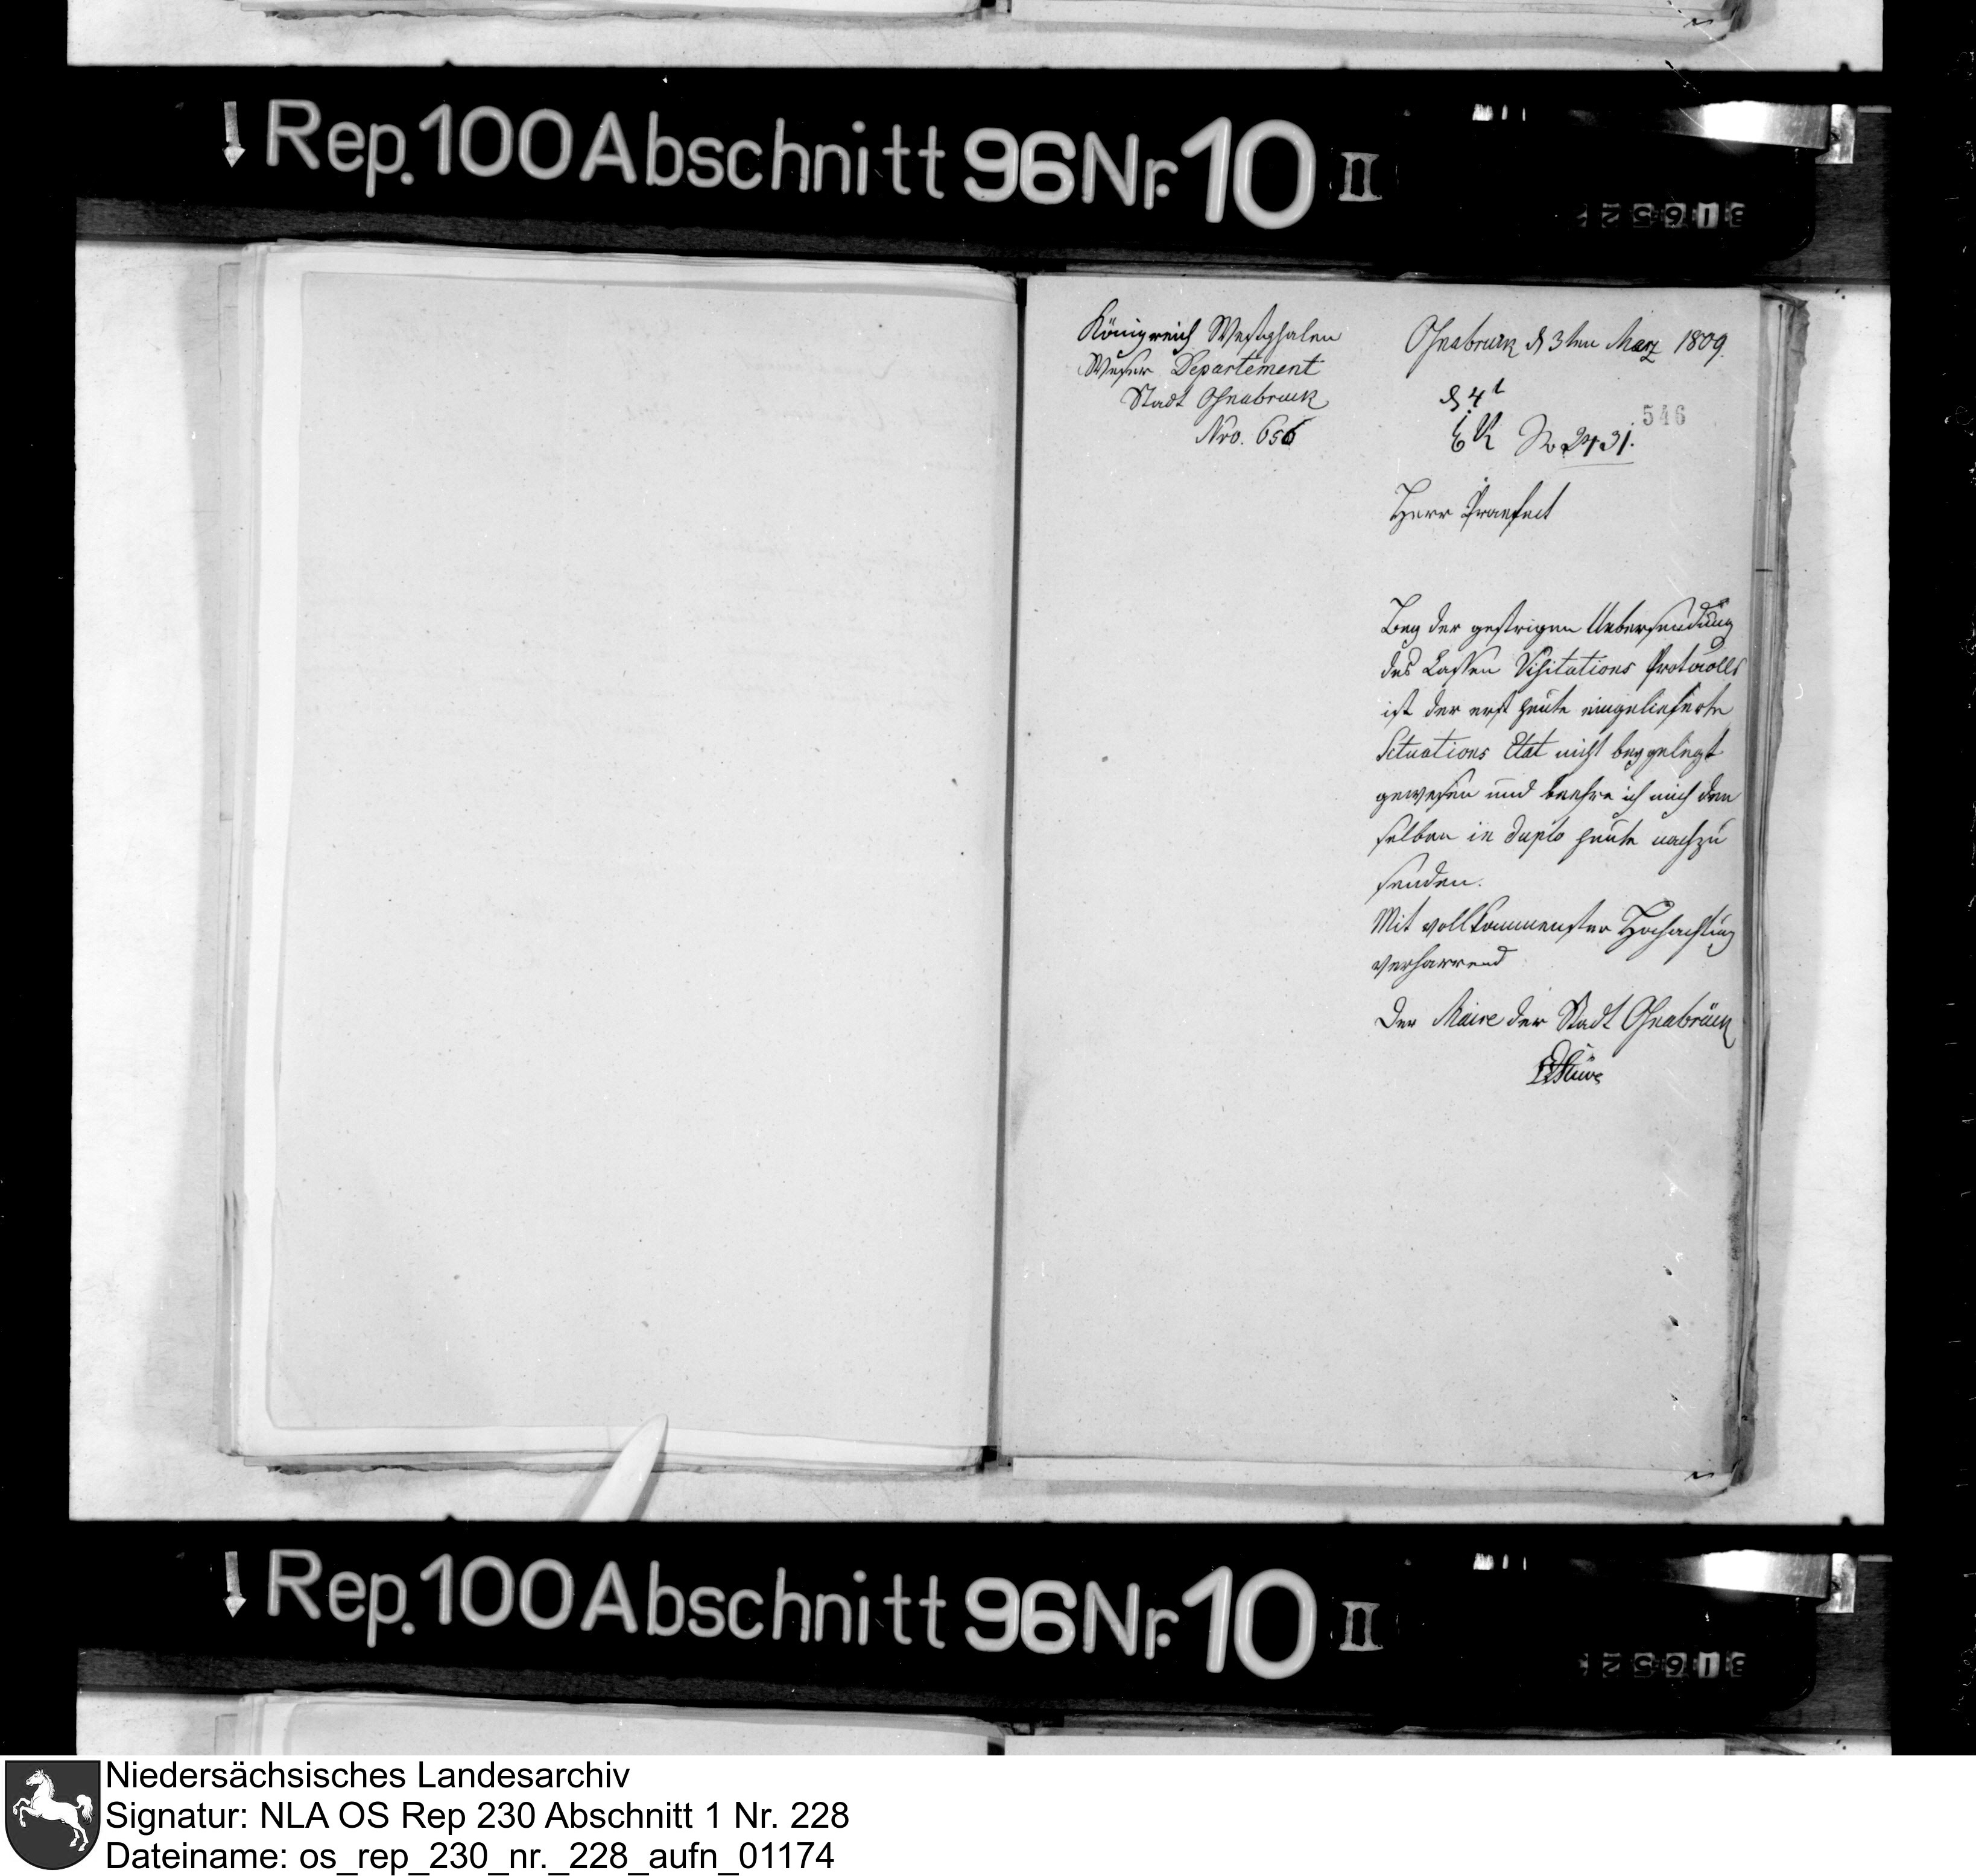 Rep. 100 Abschnitt 96 Nr. 10 II
Königreich Westphalen
Weser Departement
Stadt Osnabruck
Nro. 656
Osnabruck d 3ten März 1809.
d 4t
No 2431.
546
Herr Praefect
Bey der gestrigen Uebersendung
des Cassen Visitations Protocolls
ist der erst heute eingelieferte
Situations Etat nicht beygelegt
gewesen und beehre ich mich den
selben in duplo heute nachzu
senden.
Mit vollkommenster Hochachtung
verharrend
Der Maire der Stadt Osnabrück
Stüve
Rep. 100 Abschnitt 96 Nr. 10 II
Niedersächsisches Landesarchiv
Signatur: NLA OS Rep 230 Abschnitt 1 Nr. 228
Dateiname: os_rep_230_nr._228_aufn_01174